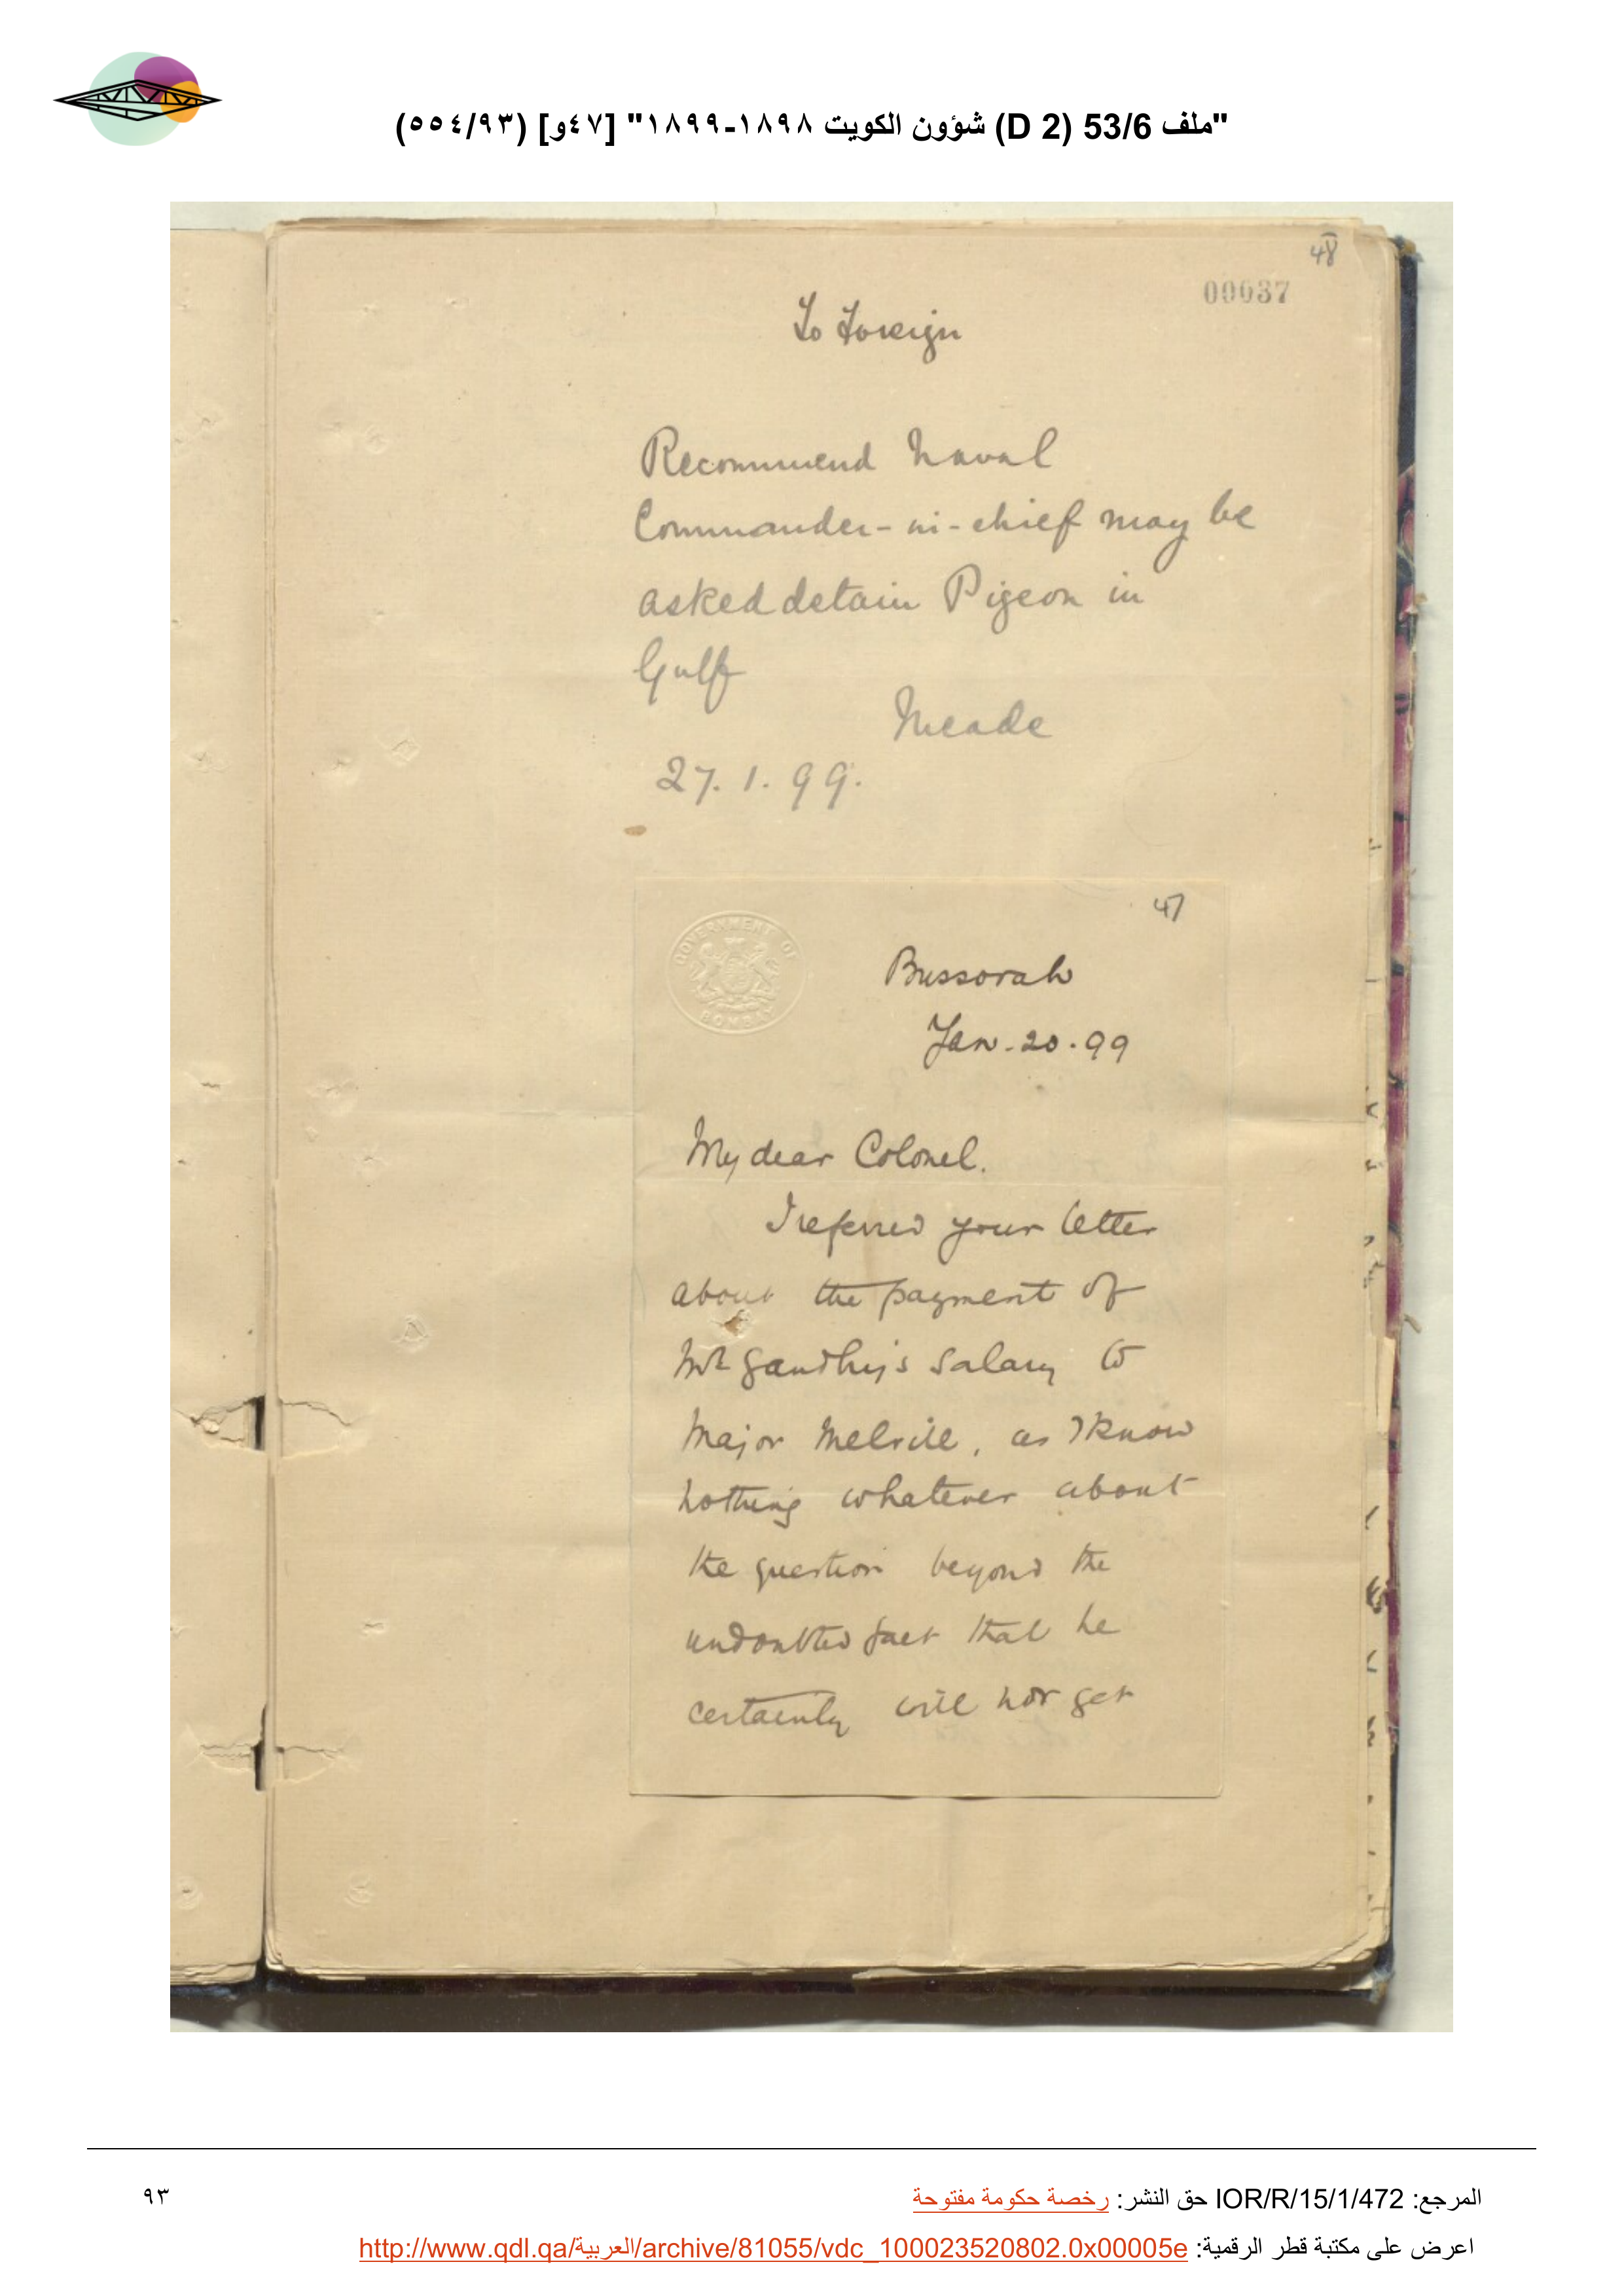 "ملف 53/6 (D 2) شؤون الكويت ١٨٩٨-١٨٩٩" [٤٧و] (٥٥٤/٩٣)
48
00037
To Foreign
Recommend Naval
Commander-in-chief may be
asked detain Pigeon in
Gulf
Meade
27. 1. 99.
47
GOVERNMENT OF
BOMBAY
Bussorah
Jan. 20. 99
My dear Colonel.
I referred your letter
about the payment of
Mr Gandhy's salary to
Major Melvill, as I know
nothing whatever about
the question beyond the
undoubted fact that he
certainly will not get
المرجع: IOR/R/15/1/472 حق النشر: رخصة حكومة مفتوحة
٩٣
اعرض على مكتبة قطر الرقمية: http://www.qdl.qa/العربية/archive/81055/vdc_100023520802.0x00005e